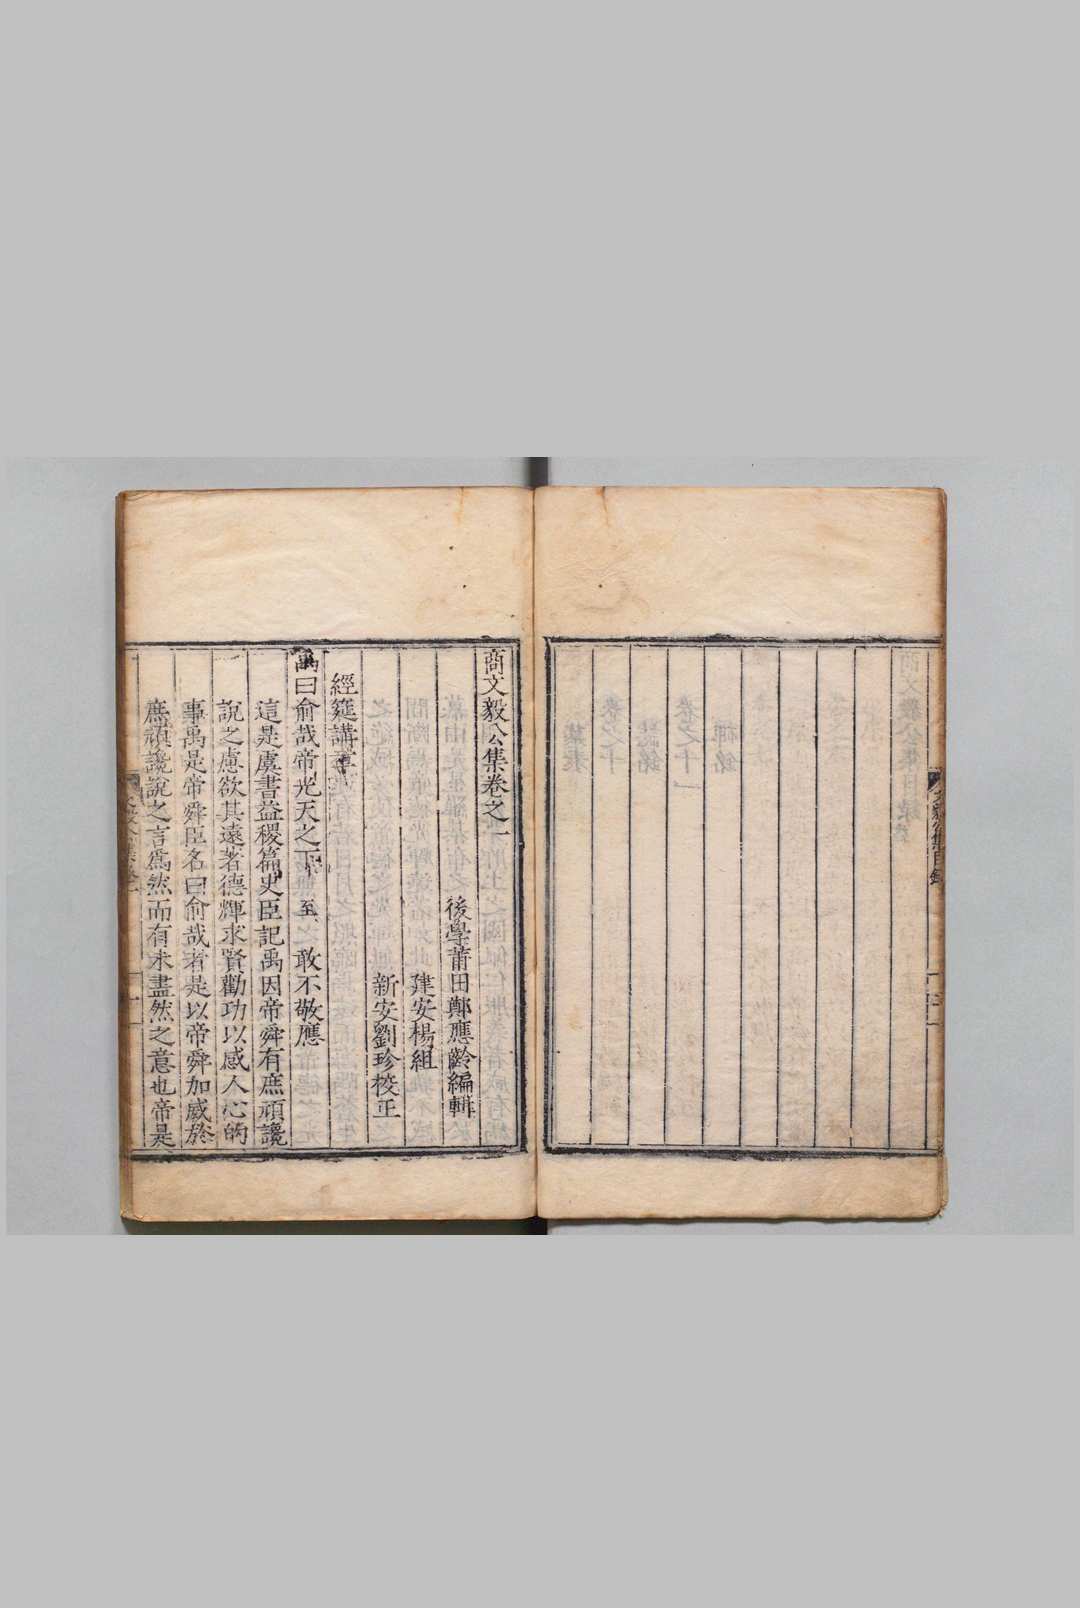 商文毅公集卷之一
後學莆田鄭應齡編輯
建安楊組
新安劉珍校正
經筵講章
禹曰俞哉帝光天之下至敢不敬應
這是虞書益稷篇史臣記禹因帝舜有庶頑讒
說之慮欲其遠著德輝求賢勸功以感人心的
事禹是帝舜臣名曰俞哉者是以帝舜加威於
庶頑讒說之言爲然而有未盡然之意也帝是